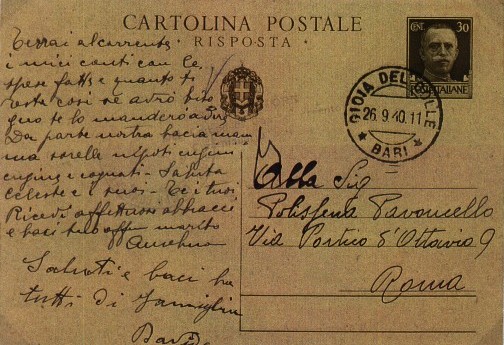 CARTOLINA POSTALE
RISPOSTA
CENT. 30
POSTE ITALIANE
GIOIA DEL COLLE
26.9.40.11
BARI
Terrai al corrente
i miei conti con le
spese fatte e quanto ti
resta così se avrò
te lo manderò
Da parte nostra bacia mam
ma sorelle nipoti cugini
cugine e cognati - Saluta
Celeste e i suoi - Te i tuoi
Ricevi affettuosi abbracci
e baci tuo aff marito
Saluti e baci ha
tutti di famiglia
Alla Sig
Polissena Pavoncello
Via Portico d'Ottavia 9
Roma